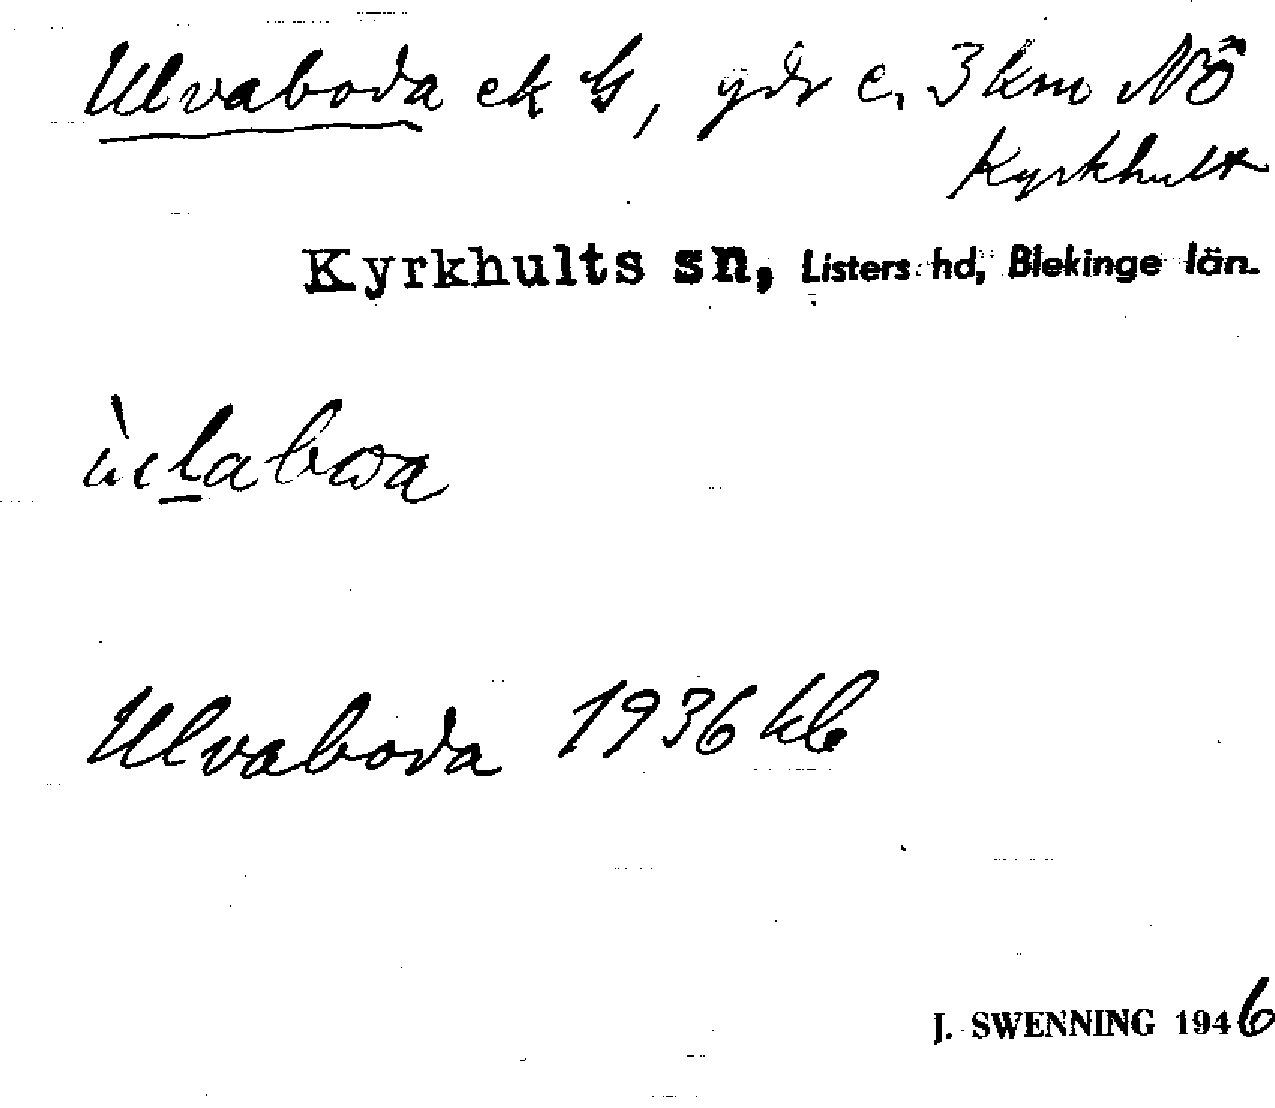 Ulvaboda ek G, gdr c. 3 km NÖ
Kyrkhult
Kyrkhults sn, Listers hd, Blekinge län.
Ulvaboda 1936 kb
J. SWENNING 1946